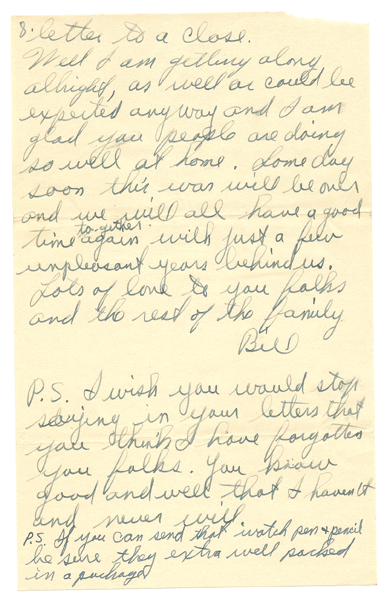 8. letter to a close.
Well I am getting along
alright, as well as could be
expected anyway and I am
glad you people are doing
so well at home. Some day
soon this war will be over
and we will all have a good
time together again with just a few
unpleasant years behind us.
Lots of love to you folks
and the rest of the family
Bill
P.S. I wish you would stop
saying in your letters that
you think I have forgotten
you folks. You know
good and well that I haven't
and never will.
P.S. If you can send that watch pen & pencil
be sure they extra well packed
in a package